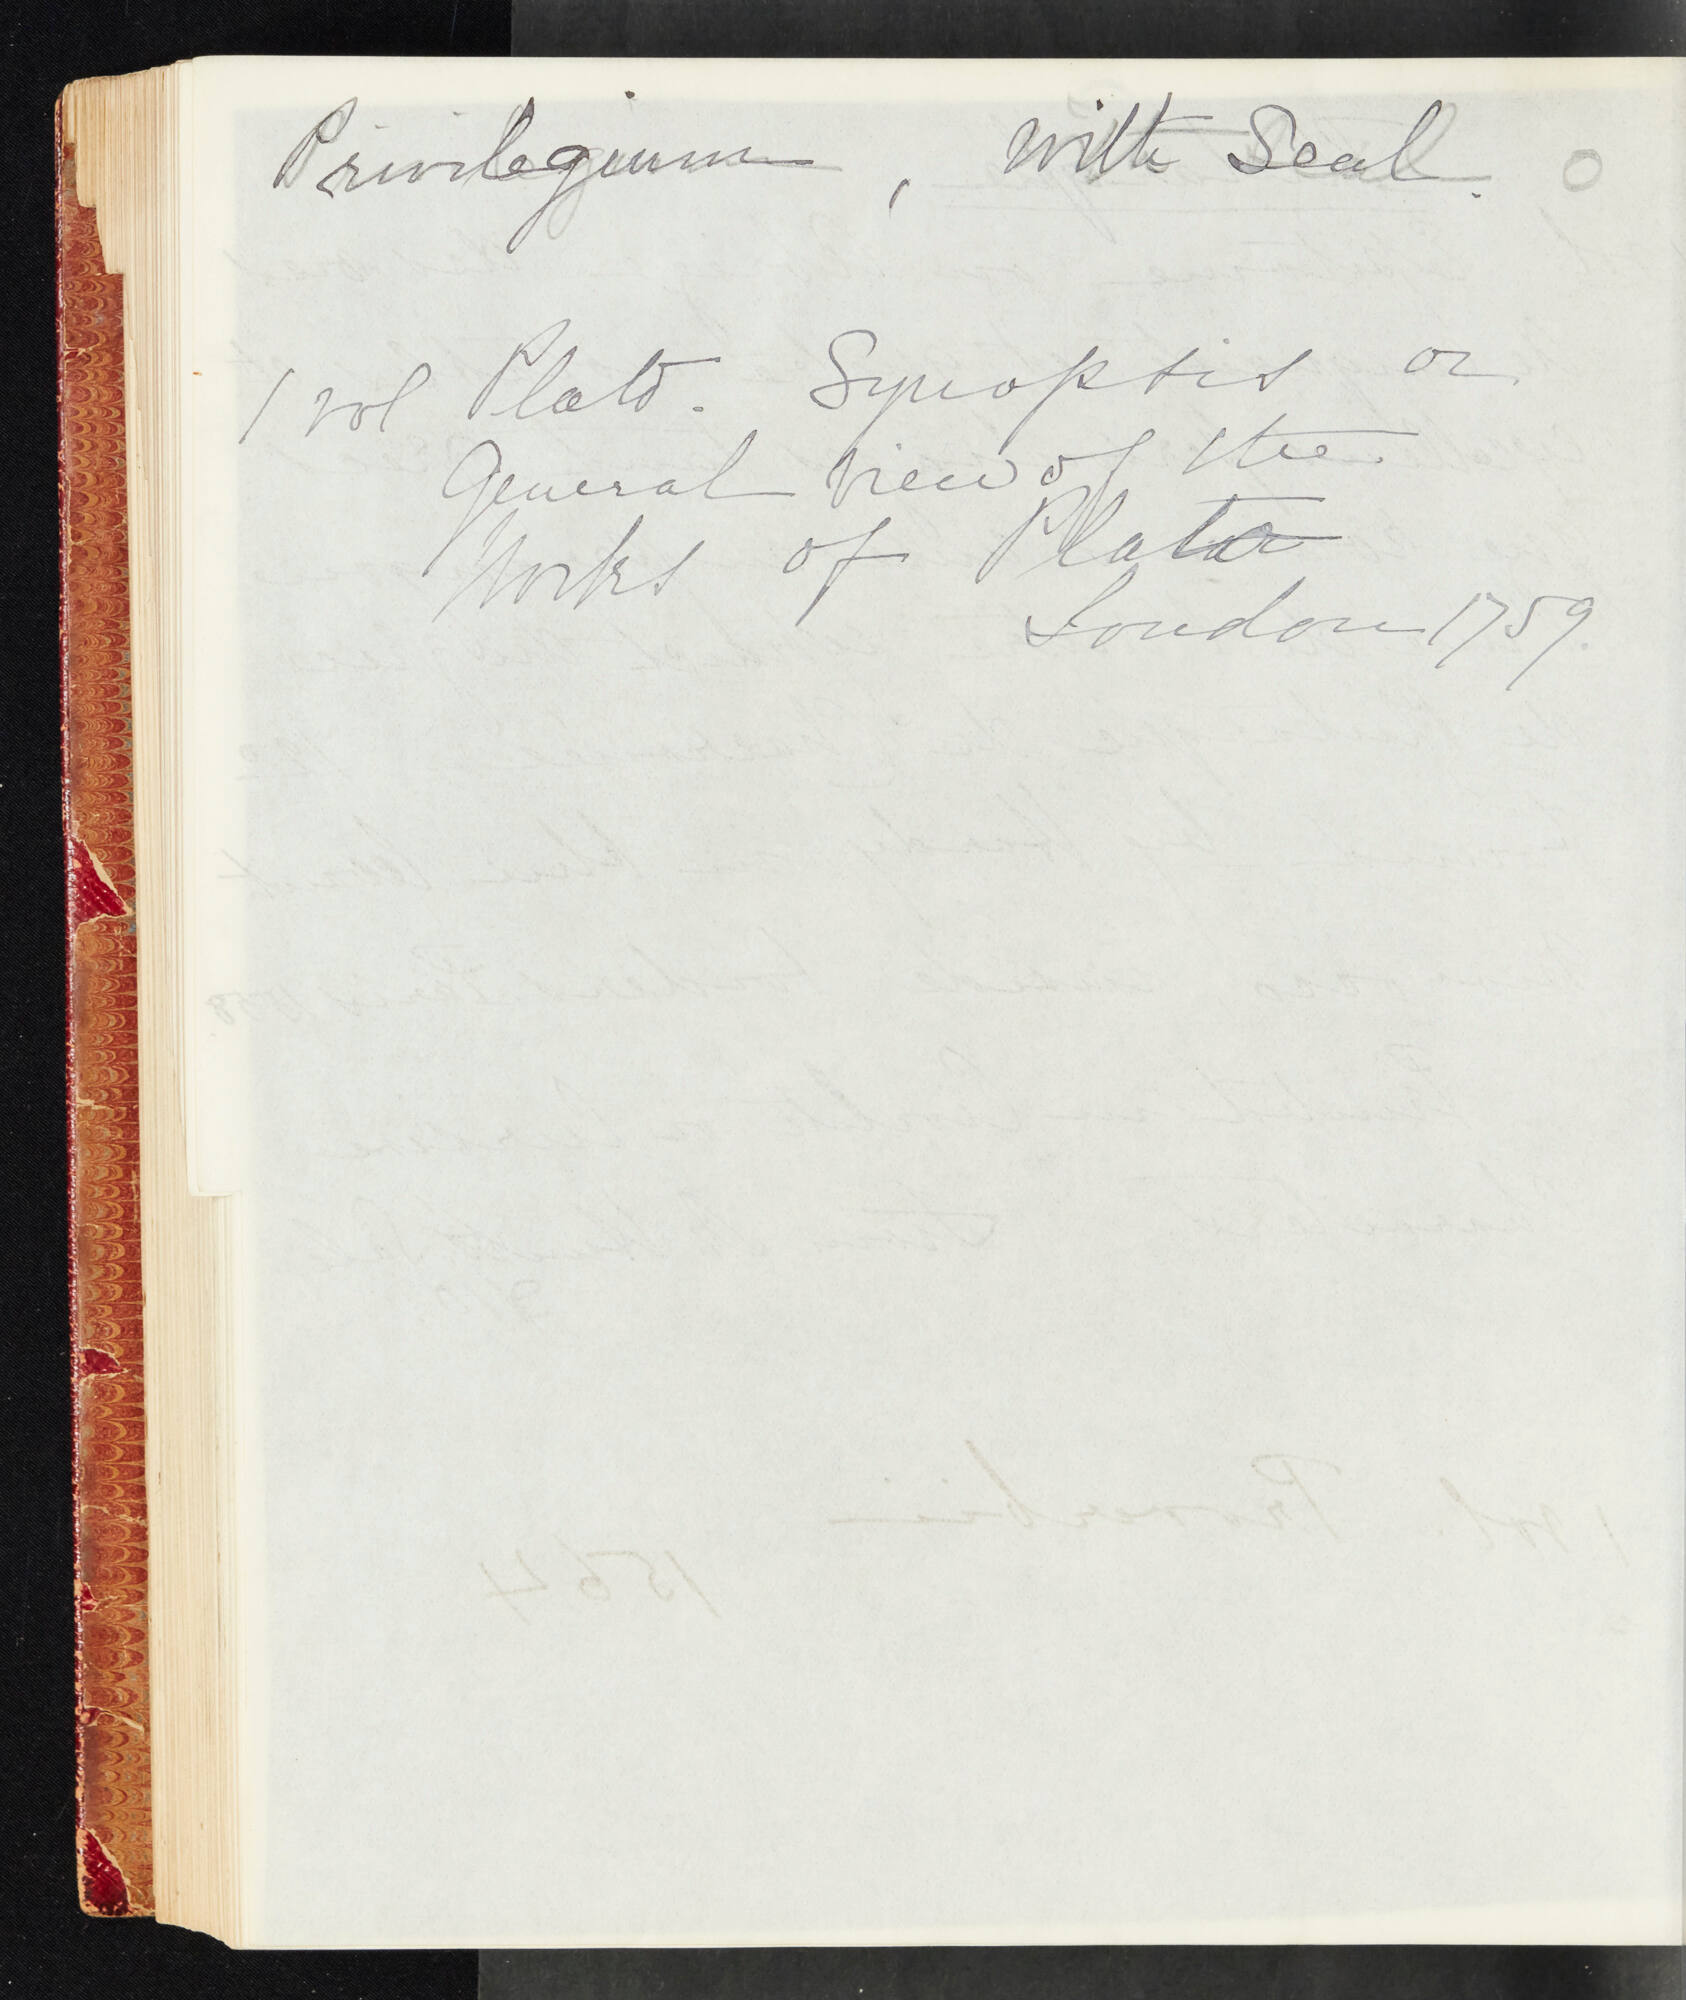 Privilegium, with Seal.
1 vol Plato. Synopsis or
General view of the
Works of Plato
London 1759.